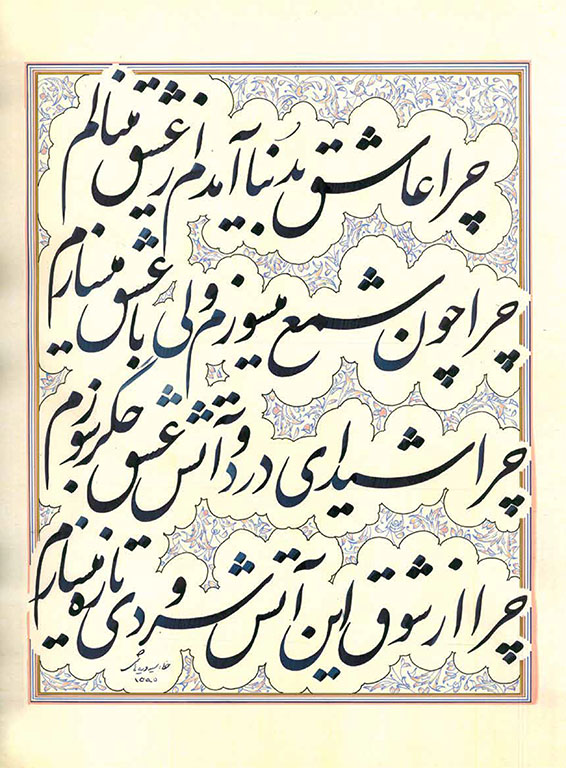 چرا عاشق بدُنیا آمدم از عشق مینالم
چرا چون شمع میسوزم ولی با عشق میسازم
چرا شیدای درد و آتش عشق جگر سوزم
چرا از شوق این آتش سرودی تازه میسازم